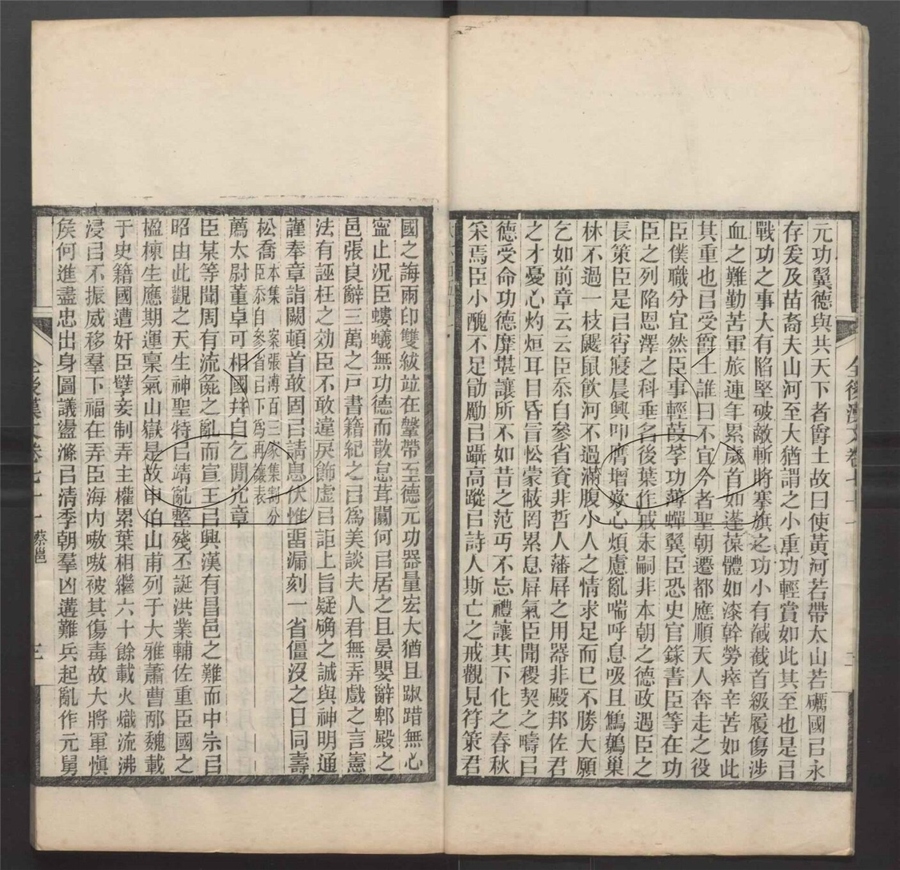 元功翼德與共天下者爵土故曰使黃河若帶太山若礪國㠯永
存爰及苗裔夫山河至大猶謂之小重功輕賞如此其至也是㠯
戰功之事大有陷堅破敵斬將搴旗之功小有馘截首級履傷涉
血之難勤苦軍旅連年累歲首如蓬葆體如漆幹勞瘁辛苦如此
其重也㠯受爵土誰曰不宜今者聖朝遷都應順天人奔走之役
臣僕職分宜然臣事輕葭莩功薄蟬翼臣恐史官錄書臣等在功
臣之列陷恩澤之科垂名後葉作戒末嗣非本朝之德政遇臣之
長策臣是㠯宵寢晨興叩膺增歎心煩慮亂喘呼息吸且鷦鷯巢
林不過一枝鼴鼠飲河不過滿腹小人之情求足而已不勝大願
乞如前章云云臣忝自參省資非哲人藩屛之用器非殿邦佐君
之才憂心灼烜耳目昏盲忪蒙蔽罔累息屛氣臣聞稷契之疇㠯
德受命功德靡堪讓所不如昔之范丏不忘禮讓其下化之春秋
采焉臣小醜不足勖勵㠯躡高蹤㠯詩人斯亡之戒觀見符策君
全後漢文卷七十一
國之誨兩印雙紱竝在鞶帶至德元功器量宏大猶且踧踖無心
寍止況臣螻蟻無功德而散怠茸闒何㠯居之且晏嬰辭邶殿之
邑張良辭三萬之戸書籍紀之㠯爲美談夫人君無弄戲之言憲
法有誣枉之効臣不敢違戾飾虛㠯詐上旨疑确之誠與神明通
謹奉章詣闕頓首敢固㠯請息伏惟畱漏刻一省僵沒之日同壽
松喬 本集 案張溥百三家集割分
臣忝自參省㠯下爲再讓表
薦太尉董卓可相國幷自乞閒宂章
臣某等聞周有流彘之亂而宣王㠯興漢有昌邑之難而中宗㠯
昭由此觀之天生神聖特㠯靖亂整殘丕誕洪業輔佐重臣國之
楹棟生應期運稟氣山嶽是故申伯山甫列于大雅蕭曹邴魏載
于史籍國遭奸臣孽妾制弄主權累葉相繼六十餘載火熾流沸
浸㠯不振威移羣下福在弄臣海内嗷嗷被其傷毒故大將軍愼
矦何進盡忠出身圖議盪滌㠯清季朝羣凶遘難兵起亂作元舅
全後漢文卷七十一 蔡邕